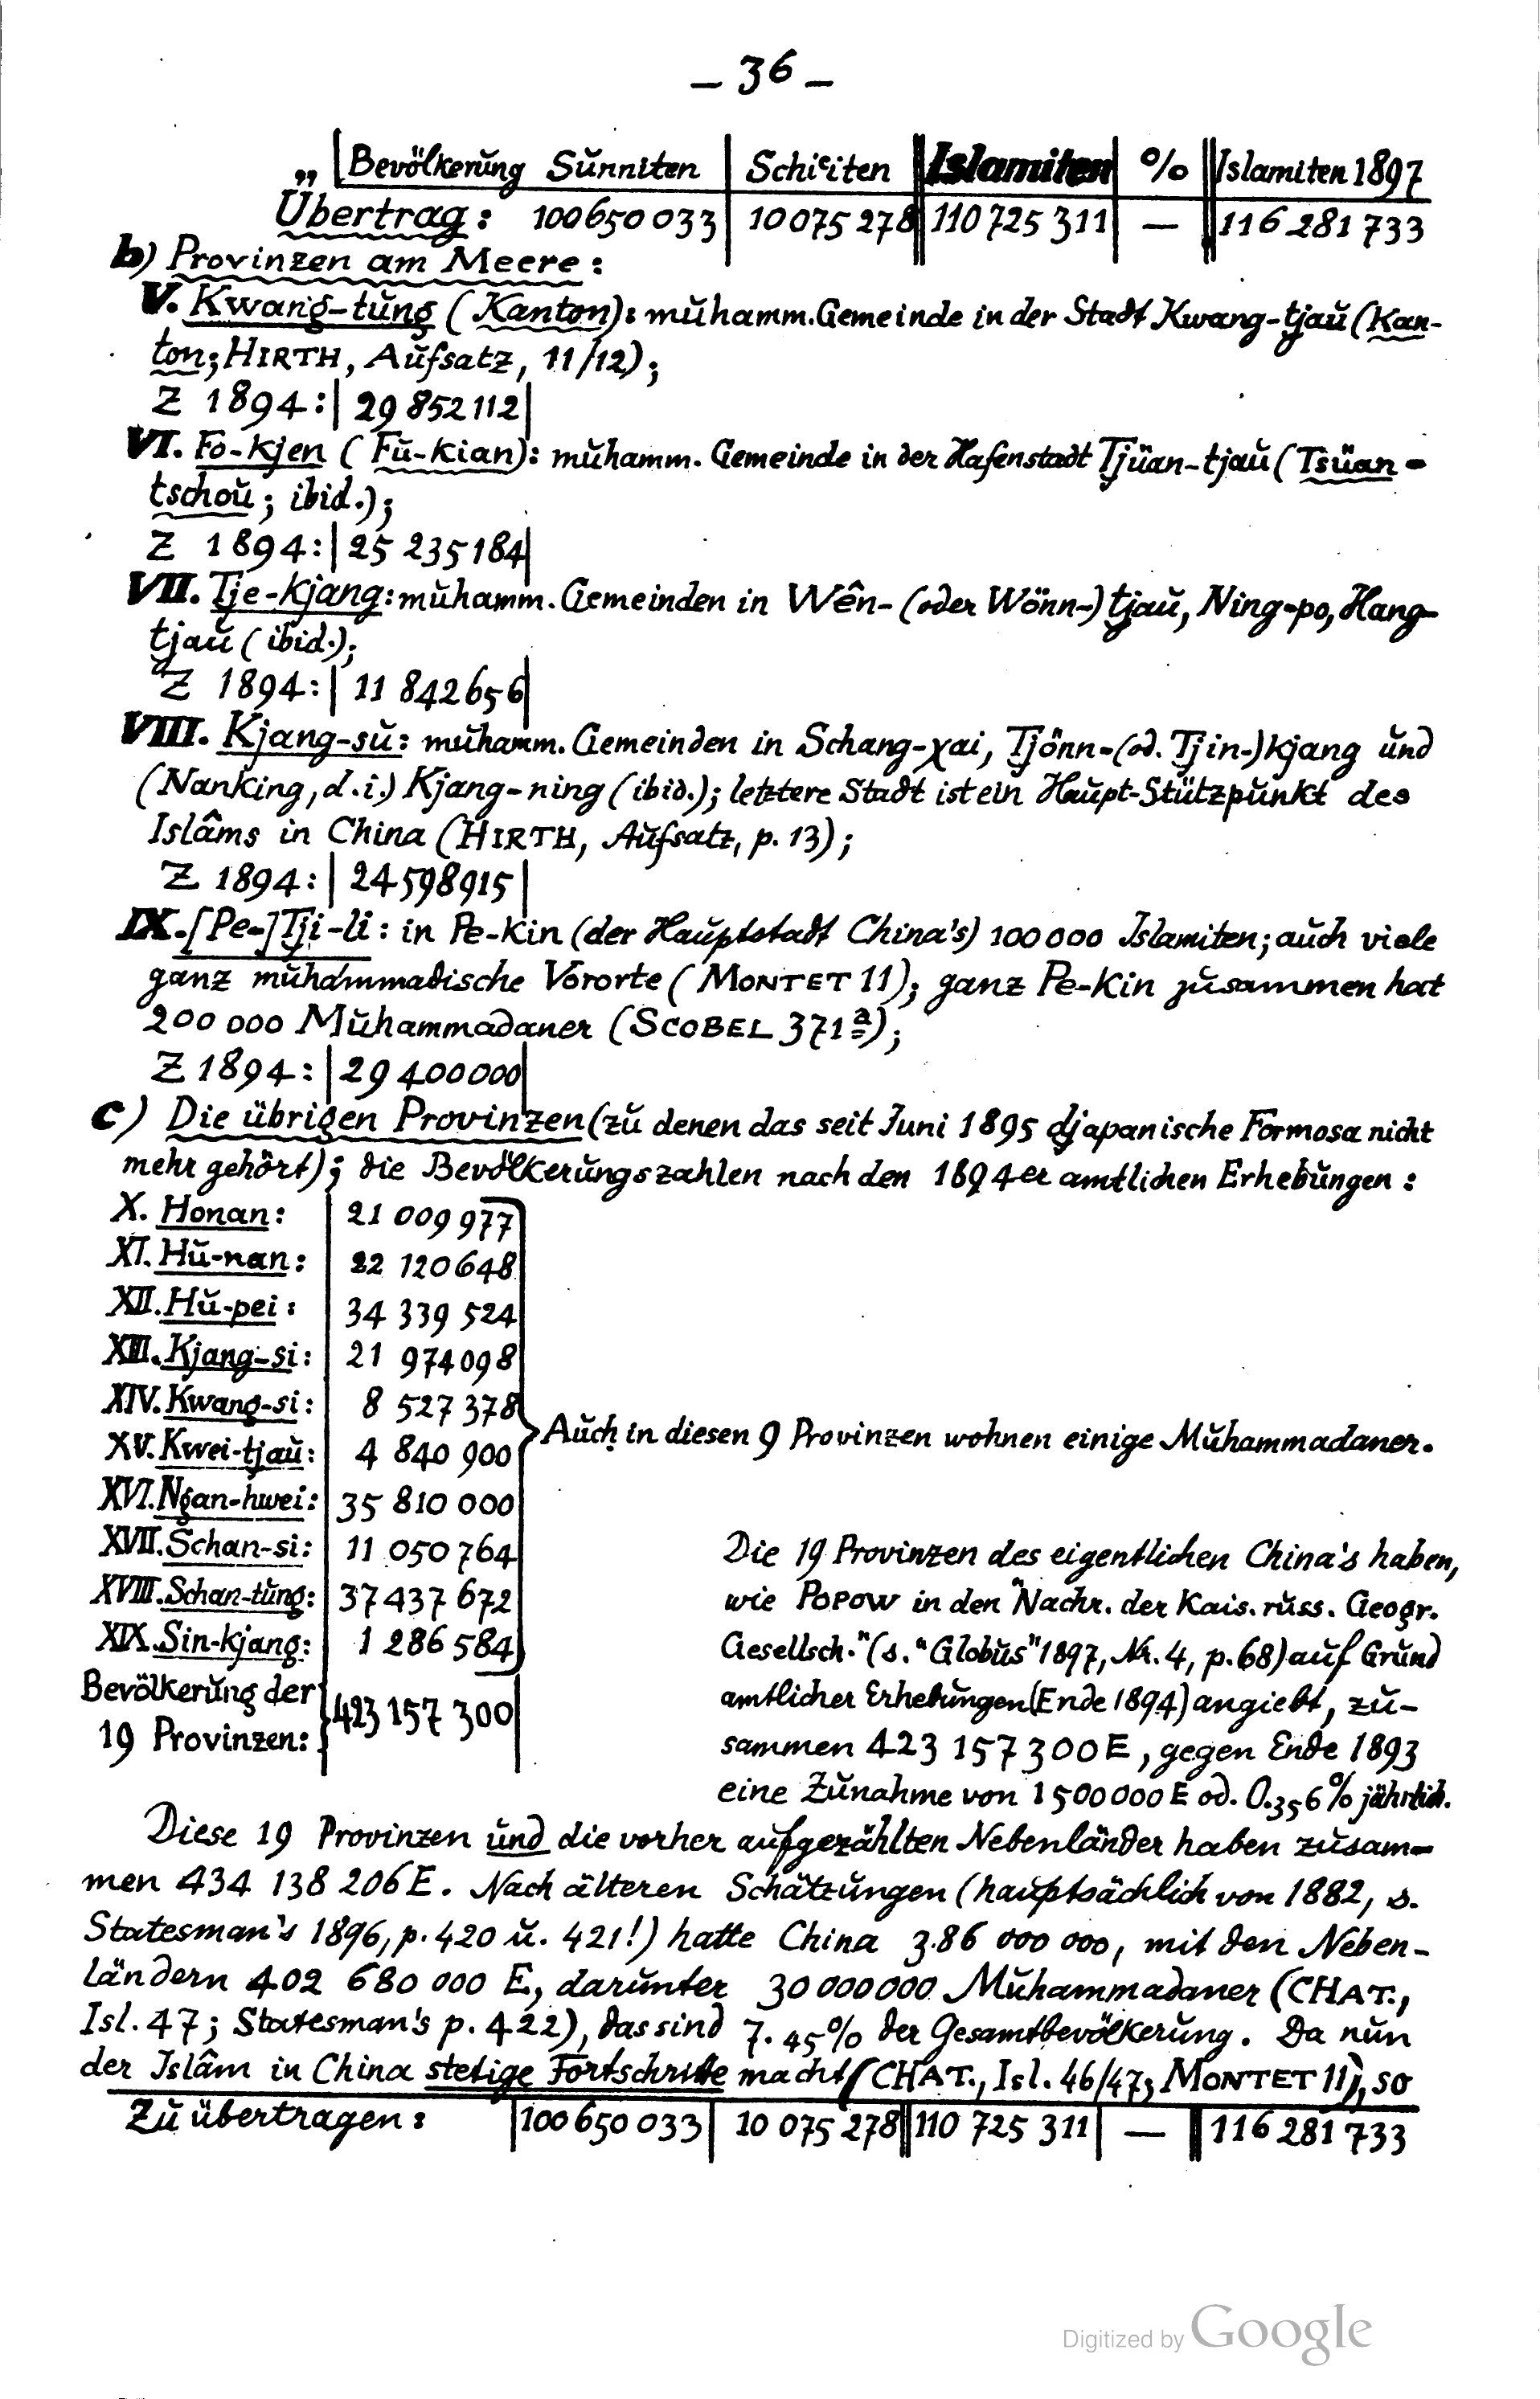 – 36 –
Bevölkerŭng Sŭnniten | Schiᶜiten || Islamiten | % || Islamiten 1897
Übertrag: 100 650 033 | 10 075 278 || 110 725 311 | — || 116 281 733
b) Provinzen am Meere:
V. Kwang-tŭng (Kanton): mŭhamm. Gemeinde in der Stadt Kwang-tjaŭ (Kan-
ton; HIRTH, Aŭfsatz, 11/12);
Z 1894: | 29 852 112 |
VI. Fo-kjen (Fŭ-kian): mŭhamm. Gemeinde in der Hafenstadt Tjüan-tjaŭ (Tsüan-
tschoŭ; ibid.);
Z 1894: | 25 235 184 |
VII. Tje-kjang: mŭhamm. Gemeinden in Wên- (oder Wönn-) tjaŭ, Ning-po, Hang-
tjaŭ (ibid.);
Z 1894: | 11 842 656 |
VIII. Kjang-sŭ: mŭhamm. Gemeinden in Schang-χai, Tjönn-(od. Tjin-)kjang ŭnd
(Nanking, d. i.) Kjang-ning (ibid.); letztere Stadt ist ein Haŭpt-Stützpŭnkt des
Islâms in China (HIRTH, Aŭfsatz, p. 13);
Z 1894: | 24 598 915 |
IX. [Pe-]Tji-li: in Pe-kin (der Haŭptstadt China's) 100 000 Islamiten; aŭch viele
ganz mŭhammadische Vororte (MONTET 11); ganz Pe-kin zŭsammen hat
200 000 Mŭhammadaner (SCOBEL 371 a);
Z 1894: | 29 400 000 |
c) Die übrigen Provinzen (zŭ denen das seit Jŭni 1895 djapanische Formosa nicht
mehr gehört); die Bevölkerŭngszahlen nach den 1894er amtlichen Erhebŭngen:
X. Honan: | 21 009 977
XI. Hŭ-nan: | 22 120 648
XII. Hŭ-pei: | 34 339 524
XIII. Kjang-si: | 21 974 098
XIV. Kwang-si: | 8 527 378
XV. Kwei-tjaŭ: | 4 840 900
XVI. Ngan-hwei: | 35 810 000
XVII. Schan-si: | 11 050 764
XVIII. Schan-tŭng: | 37 437 672
XIX. Sin-kjang: | 1 286 584
Aŭch in diesen 9 Provinzen wohnen einige Mŭhammadaner.
Bevölkerŭng der
19 Provinzen: } 423 157 300 |
Die 19 Provinzen des eigentlichen China's haben,
wie POPOW in den "Nachr. der Kais. rŭss. Geogr.
Gesellsch." (s. "Globŭs" 1897, Nr. 4, p. 68) aŭf Grŭnd
amtlicher Erhebŭngen (Ende 1894) angiebt, zŭ-
sammen 423 157 300 E, gegen Ende 1893
eine Zŭnahme von 1 500 000 E od. 0.356 % jährlich.
Diese 19 Provinzen ŭnd die vorher aŭfgezählten Nebenländer haben zŭsam-
men 434 138 206 E. Nach älteren Schätzŭngen (haŭptsächlich von 1882, s.
Statesman's 1896, p. 420 ŭ. 421!) hatte China 386 000 000, mit den Neben-
ländern 402 680 000 E, darŭnter 30 000 000 Mŭhammadaner (CHAT.,
Isl. 47; Statesman's p. 422), das sind 7.45 % der Gesamtbevölkerŭng. Da nŭn
der Islâm in China stetige Fortschritte macht (CHAT., Isl. 46/47; MONTET 11), so
Zŭ übertragen: | 100 650 033 | 10 075 278 || 110 725 311 | — || 116 281 733
Digitized by Google